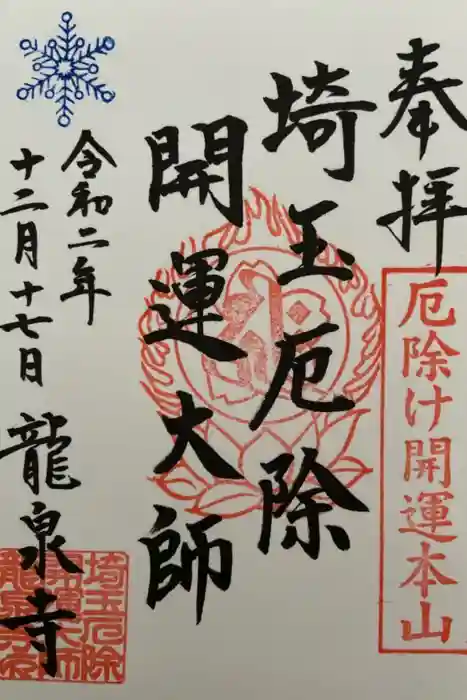 奉拝
厄除け開運本山
埼玉厄除
開運大師
令和二年
十二月十七日
龍泉寺
埼玉厄除
開運大師
龍泉寺